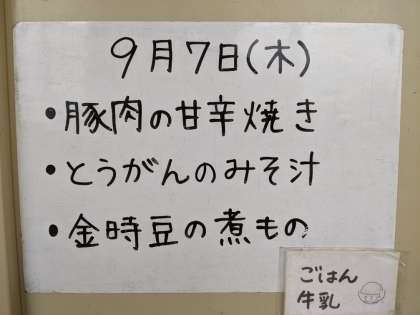 9月7日(木)
•豚肉の甘辛焼き
•とうがんのみそ汁
•金時豆の煮もの
ごはん
牛乳